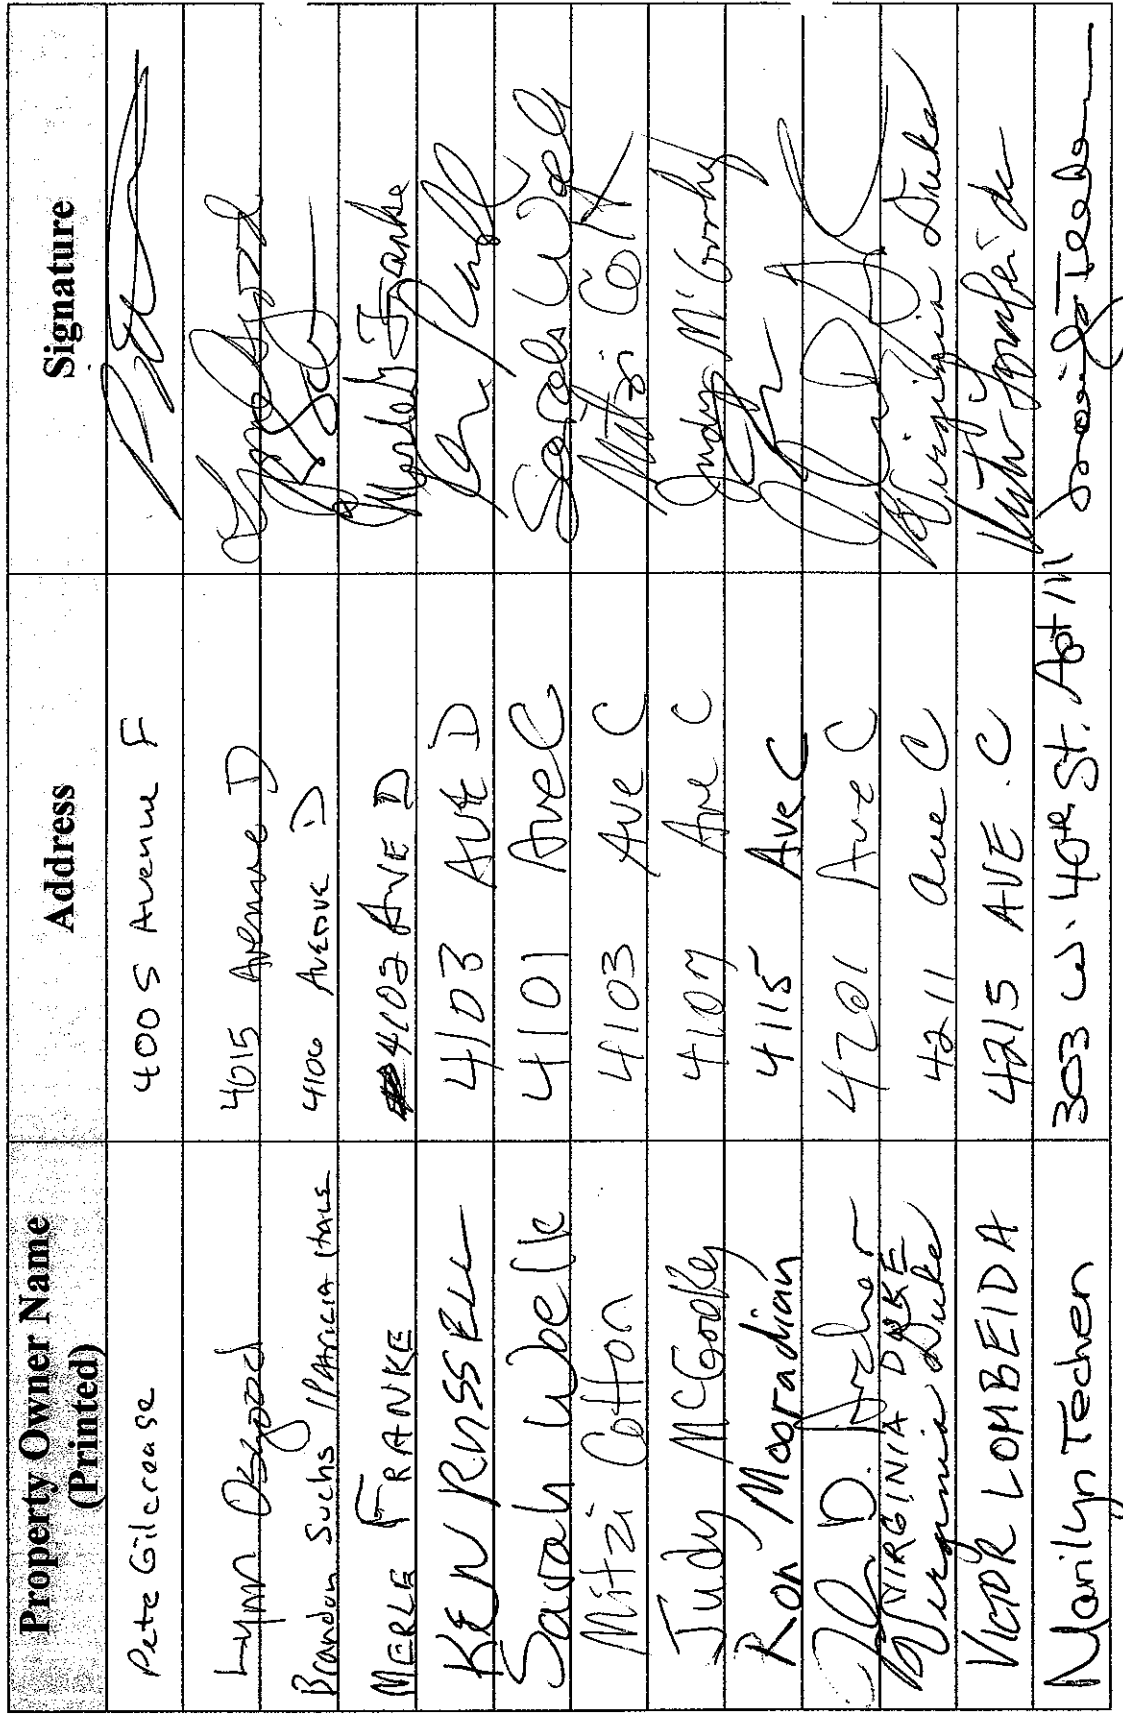 Property Owner Name (Printed) Address Signature
Pete Gilcrease 4005 Avenue F
Lynn Osgood 4015 Avenue D Lynn Osgood
Brandon Suchs / Patricia 4106 Avenue D
MERLE FRANKE 4102 AVE D Merle Franke
KEN RUSSELL 4103 AVE D
Sarah Woelk 4101 Ave C Sarah Woelk
Mitzi Cotton 4103 Ave C Mitzi
Judy McGookey 4107 Ave C Judy
Ron Mooradian 4115 Ave C
D. Archer 4201 Ave C
VIRGINIA DUKE 4211 Ave C Virginia Duke
Virginia Duke
VICTOR LOMBEIDA 4215 AVE. C
Marilyn Techen 303 W. 40th St. Apt 111